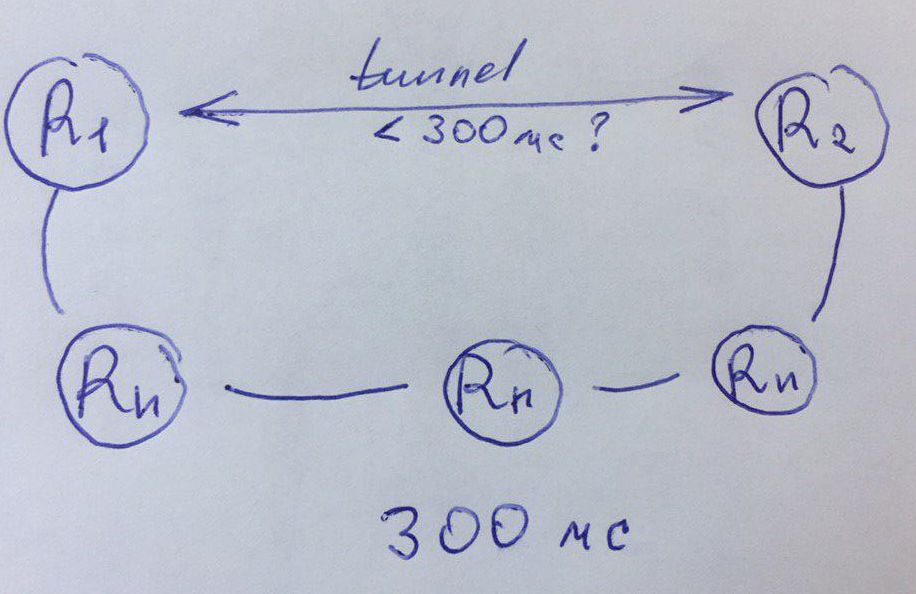 tunnel
R1
< 300 мс ?
R2
Rn
Rn
Rn
300 мс